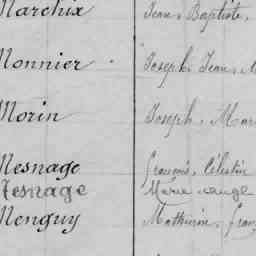 Marchix Jean, Baptiste,
Monnier Joseph, Jean, M
Morin Joseph, Mar
Mesnage François, Célestin
Mesnage Marie ange
Menguy Mathurin, Fran